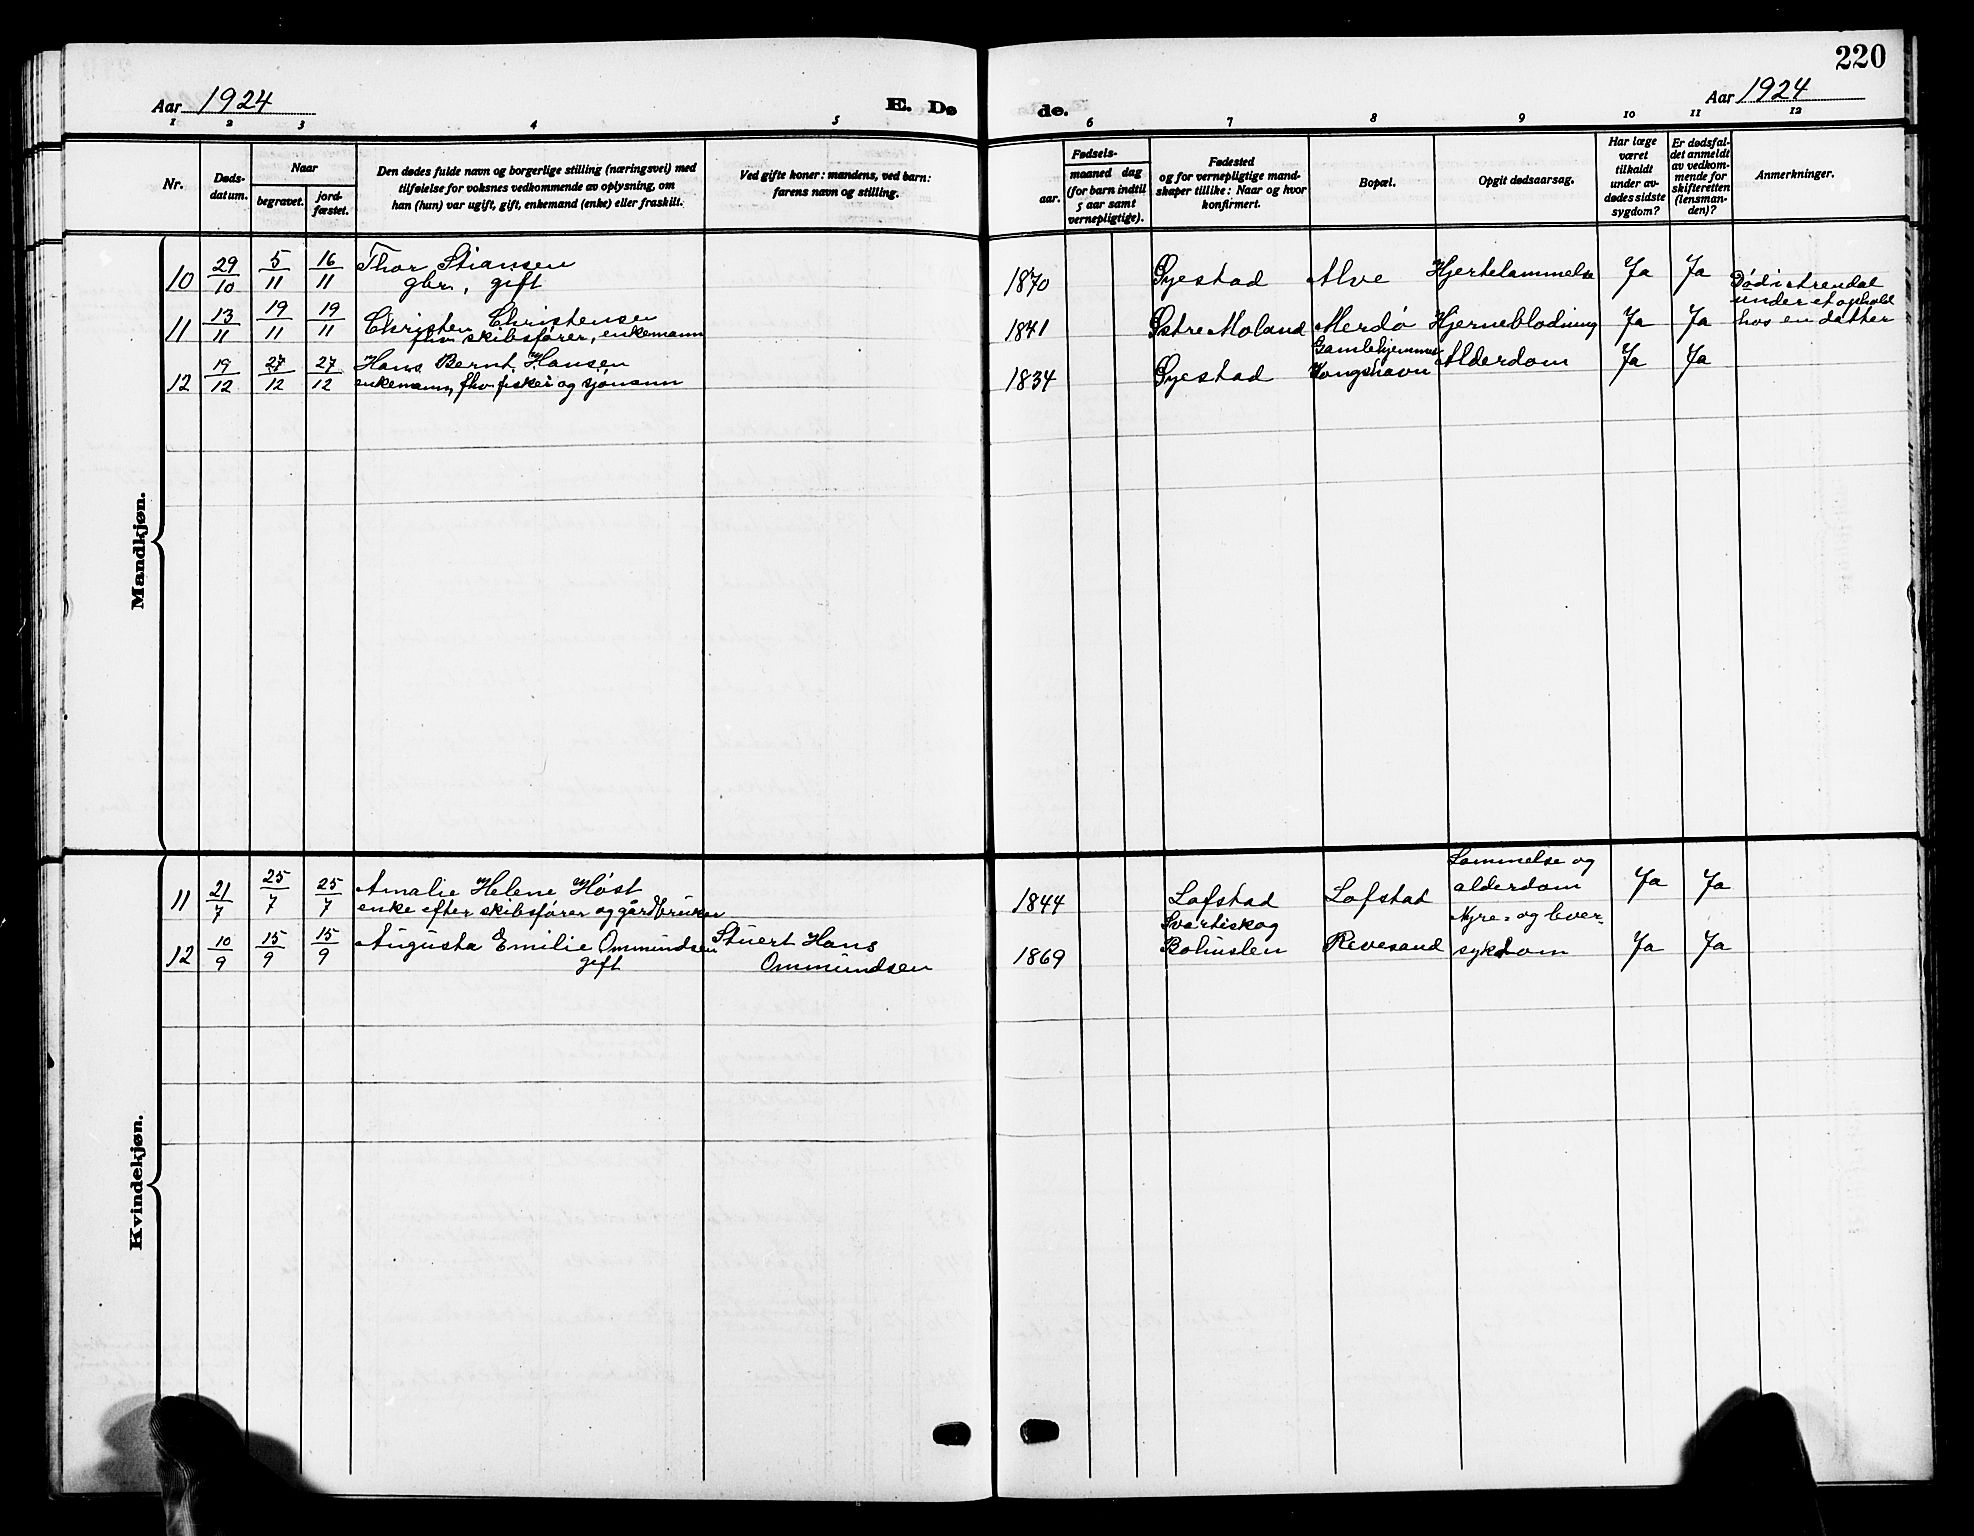 220
Aar 1924
E. Dø
de.
Aar 1924
1 2 3 4 5 6 7 8 9 10 11 12
Nr.
Døds-
datum.
Naar
begravet.
jord-
fæstet.
Den dødes fulde navn og borgerlige stilling (næringsvei) med
tilføielse for voksnes vedkommende av oplysning, om
han (hun) var ugift, gift, enkemand (enke) eller fraskilt.
Ved gifte koner: mandens, ved barn:
farens navn og stilling.
Fødsels-
aar.
maaned dag
(for barn indtil
5 aar samt
vernepligtige).
Fødested
og for vernepligtige mand-
skaper tillike: Naar og hvor
konfirmert.
Bopæl.
Opgit dødsaarsag.
Har læge
været
tilkaldt
under av-
dødes sidste
sygdom?
Er dødsfal-
det anmeldt
av vedkom-
mende for
skifteretten
(lensman-
den)?
Anmerkninger.
Mandkjøn.
10 29/10 5/11 16/11 Thor Stiansen
gbr., gift
1870 Øyestad Alve Hjertelammelse Ja Ja
11 13/11 19/11 19/11 Christen Christensen
fhv. skibsfører, enkemann
1841 Østre Moland Merdø Hjerneblødning Ja Ja
Død i Arendal
under et ophold
hos en datter
12 19/12 27/12 27/12 Hans Bernt Hansen
enkemann, fhv. fisker og sjømann
1834 Øyestad Gamlehjemmet
Kongshavn Alderdom Ja Ja
Kvindekjøn.
11 21/7 25/7 25/7 Amalie Helene Høst
enke efter skibsfører og gårdbruker
1844 Lofstad Lofstad Lammelse og
alderdom Ja Ja
12 10/9 15/9 15/9 Augusta Emilie Ommundsen
gift
Stuert Hans
Ommundsen
1869 Svartiskog
Bohuslen Revesand Nyre- og lever-
sykdom Ja Ja